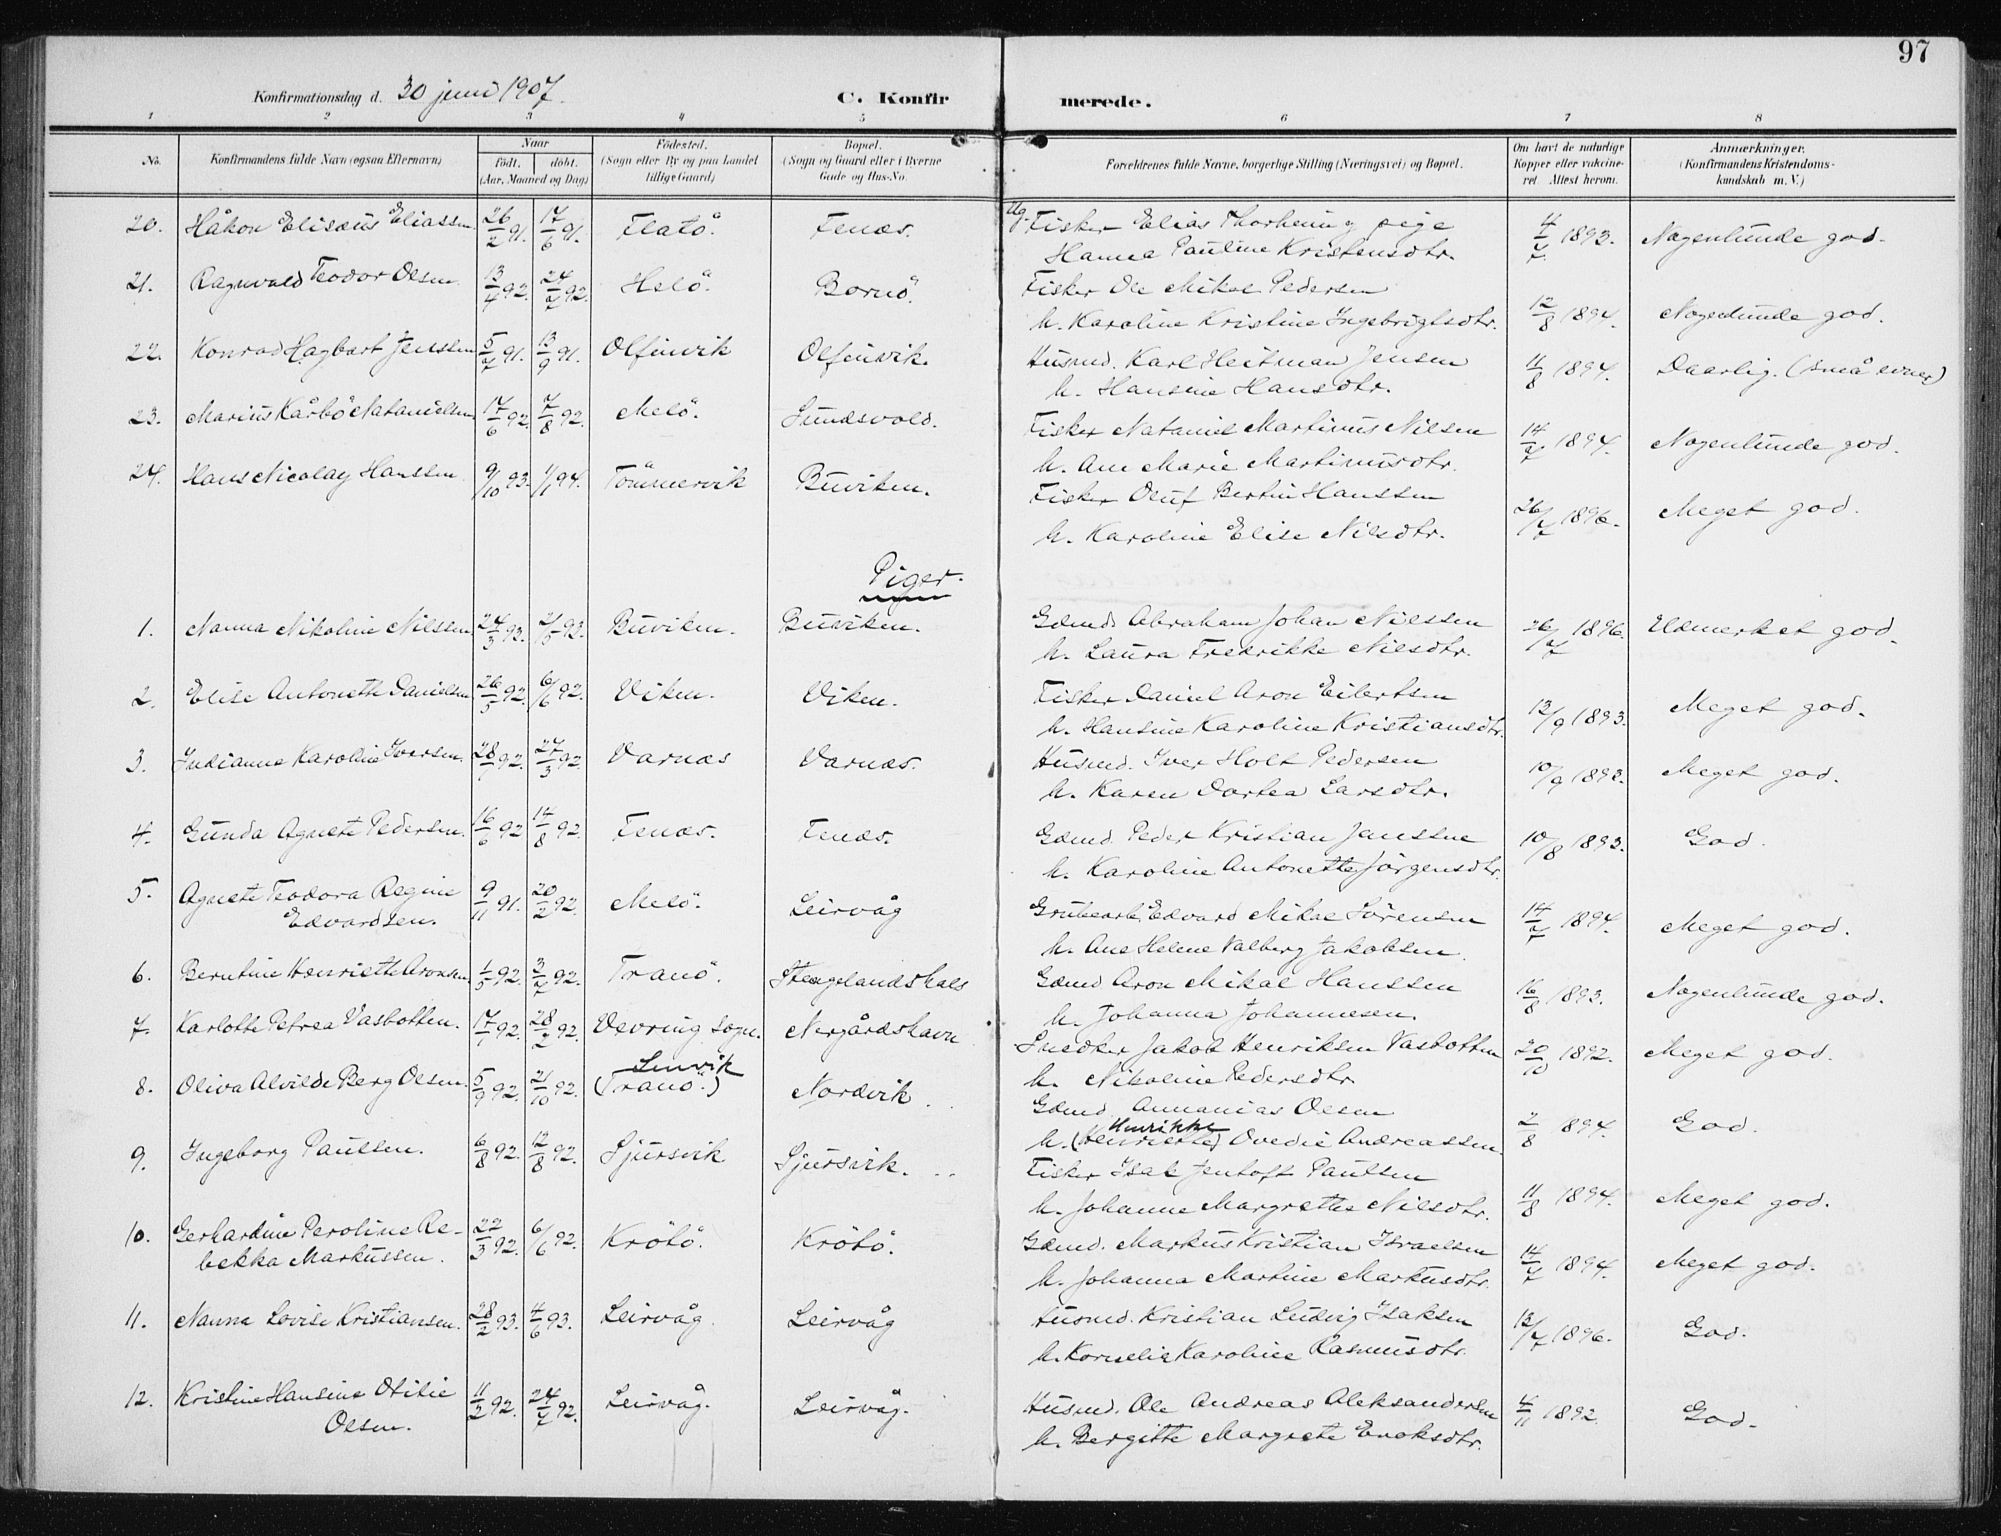 97
Konfirmationsdag d. 30 juni 1907.
C. Konfirmerede.
1 2 3 4 5 6 7 8
No.
Konfirmandens fulde Navn (ogsaa Efternavn)
Naar
født. døbt.
(Aar, Maaned og Dag)
Fødested.
(Sogn eller By og paa Landet
tillige Gaard)
Bopæl.
(Sogn og Gaard eller i Byerne
Gade og Hus-No.
Forældrenes fulde Navne, borgerlige Stilling (Næringsvei) og Bopæl.
Om havt de naturlige
Kopper eller vaccine-
ret. Attest herom.
Anmærkninger.
(Konfirmandens Kristendoms-
kundskab m. V.)
20. Håkon Elisæus Eliassen 26/2 91. 17/6 91. Flatö. Fenæs. Ug. Fisker Elias Thorheim og pige
Hanna Pauline Kristensdtr. 4/7 1893. Nogenlunde god.
21. Ragnvald Teodor Olsen 13/4 92. 24/7 92. Helö. Bornö. Fisker Ole Mikal Pedersen
h. Karoline Kristine Ingebrigtsdtr. 12/8 1894. Nogenlunde god.
22. Konrad Hagbart Jenssen 5/7 91. 13/9 91. Olfinvik Olfinvik. Husmd. Karl Heitman Jensen
h. Hansine Hansdtr. 11/8 1894. Daarlig. (små evner)
23. Marius Kårbö Natanielsen 17/6 92. 7/8 92. Melö. Sundsvold. Fisker Nataniel Martinus Nilsen
h. Ane Marie Martinusdtr. 14/7 1894. Nogenlunde god.
24. Hans Nicolay Hanssen 9/10 93. 1/1 94. Tömmervik Buviken. Fisker Oluf Bertin Hanssen
h. Karoline Elise Nilsdtr. 26/7 1896. Meget god.
Piger.
1. Nanna Nikoline Nilssen 24/3 93. 21/5 93. Buviken. Buviken. Gdmd. Abraham Johan Nilssen
h. Laura Fredrikke Nilsdtr. 26/7 1896. Udmerket god.
2. Elise Antonette Danielsen 26/5 92. 6/6 92. Viken. Viken. Fisker Daniel Aron Eilertsen
h. Hansine Karoline Kristiansdtr. 13/9 1893. Meget god.
3. Indianna Karoline Iversen. 28/1 92. 27/3 92. Varnæs Varnæs. Husmd. Iver Holt Pedersen
h. Karen Dortea Larsdtr. 10/9 1893. Meget god.
4. Gunda Agnete Pedersen. 16/6 92 14/8 92. Fenæs. Fenæs. Gdmd. Peder Kristian Janssen
h. Karoline Antonette Jörgensdtr. 10/8 1893. God.
5. Agnete Teodora Regine
Edvardsen. 9/11 91. 20/2 92. Melö. Leirvåg Grubearb. Edvard Mikal Sørensen
h. Ane Helene Valberg Jakobsen. 14/7 1894. Meget god.
6. Berntine Henriette Aronsen 1/5 92. 3/7 92. Tranö. Stangelandshals Gdmd Aron Mikal Hanssen
h. Johanna Johannesen. 16/8 1893. Nogenlunde god.
7. Karlotte Petrea Vasbotten. 17/1 92. 28/2 92. Vevring sogn. Nergårdshavn Snedker Jakob Henriksen Vasbotten
h. Nikoline Pedersdtr. 20/10 1892. Meget god.
8. Oliva Alvilde Berg Olsen. 5/9 92. 21/10 92. Lenvik
(Tranö.) Nordvik. Gdmd. Annanias Olsen
Henrikke
h. (Henriette) Ovedie Andreassen. 2/8 1894. God.
9. Ingeborg Paulsen. 6/8 92. 12/8 92. Sjursvik Sjursvik. Fisker Isak Jentoft Paulsen
h. Johanne Margrethe Nilsdtr. 11/8 1894. Meget god.
10. Gerhardine Peroline Re-
bekka Markussen. 22/3 92. 6/6 92. Krötö. Krötö. Gdmd. Markus Kristian Israelsen
h. Johanna Martine Markusdtr. 14/7 1894. Meget god.
11. Nanna Lovise Kristiansen. 28/2 93. 4/6 93. Leirvåg. Leirvåg Husmd. Kristian Ludvig Isaksen
h. Kornelie Karoline Rasmusdtr. 12/7 1896. God.
12. Kristine Hansine Otilie
Olsen. 11/2 92. 24/7 92. Leirvåg. Leirvåg. Husmd. Ole Andreas Aleksandersen
h. Bergitte Margrete Enoksdtr. 4/11 1892. God.